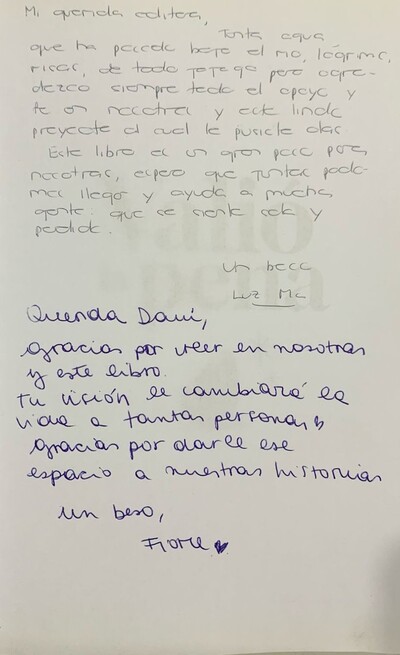 Mi querida editora,
Tanta agua
que ha pasado bajo el río, lágrimas,
risas, de todo pero agra-
dezco siempre todo el apoyo y
fe en nosotras y este lindo
proyecto al cual le pusiste alas
Este libro es un gran paso para
nosotras, espero que juntas poda-
mos llegar y ayudar a mucha
gente. que se siente sola y
perdida.
Un beso
Luz Ma
Querida Davi,
gracias por creer en nosotras
y este libro.
Tu visión le cambiará la
vida a tantas personas
gracias por darle ese
espacio a nuestras historias
un beso,
Fiore